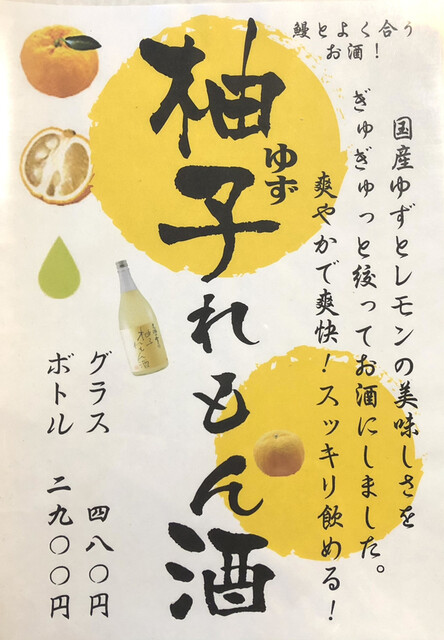 鰻とよく合う
お酒！
国産ゆずとレモンの美味しさを
ぎゅぎゅっと絞ってお酒にしました。
爽やかで爽快！スッキリ飲める！
柚子れもん酒
ゆず
グラス 四八〇円
ボトル 二九〇〇円